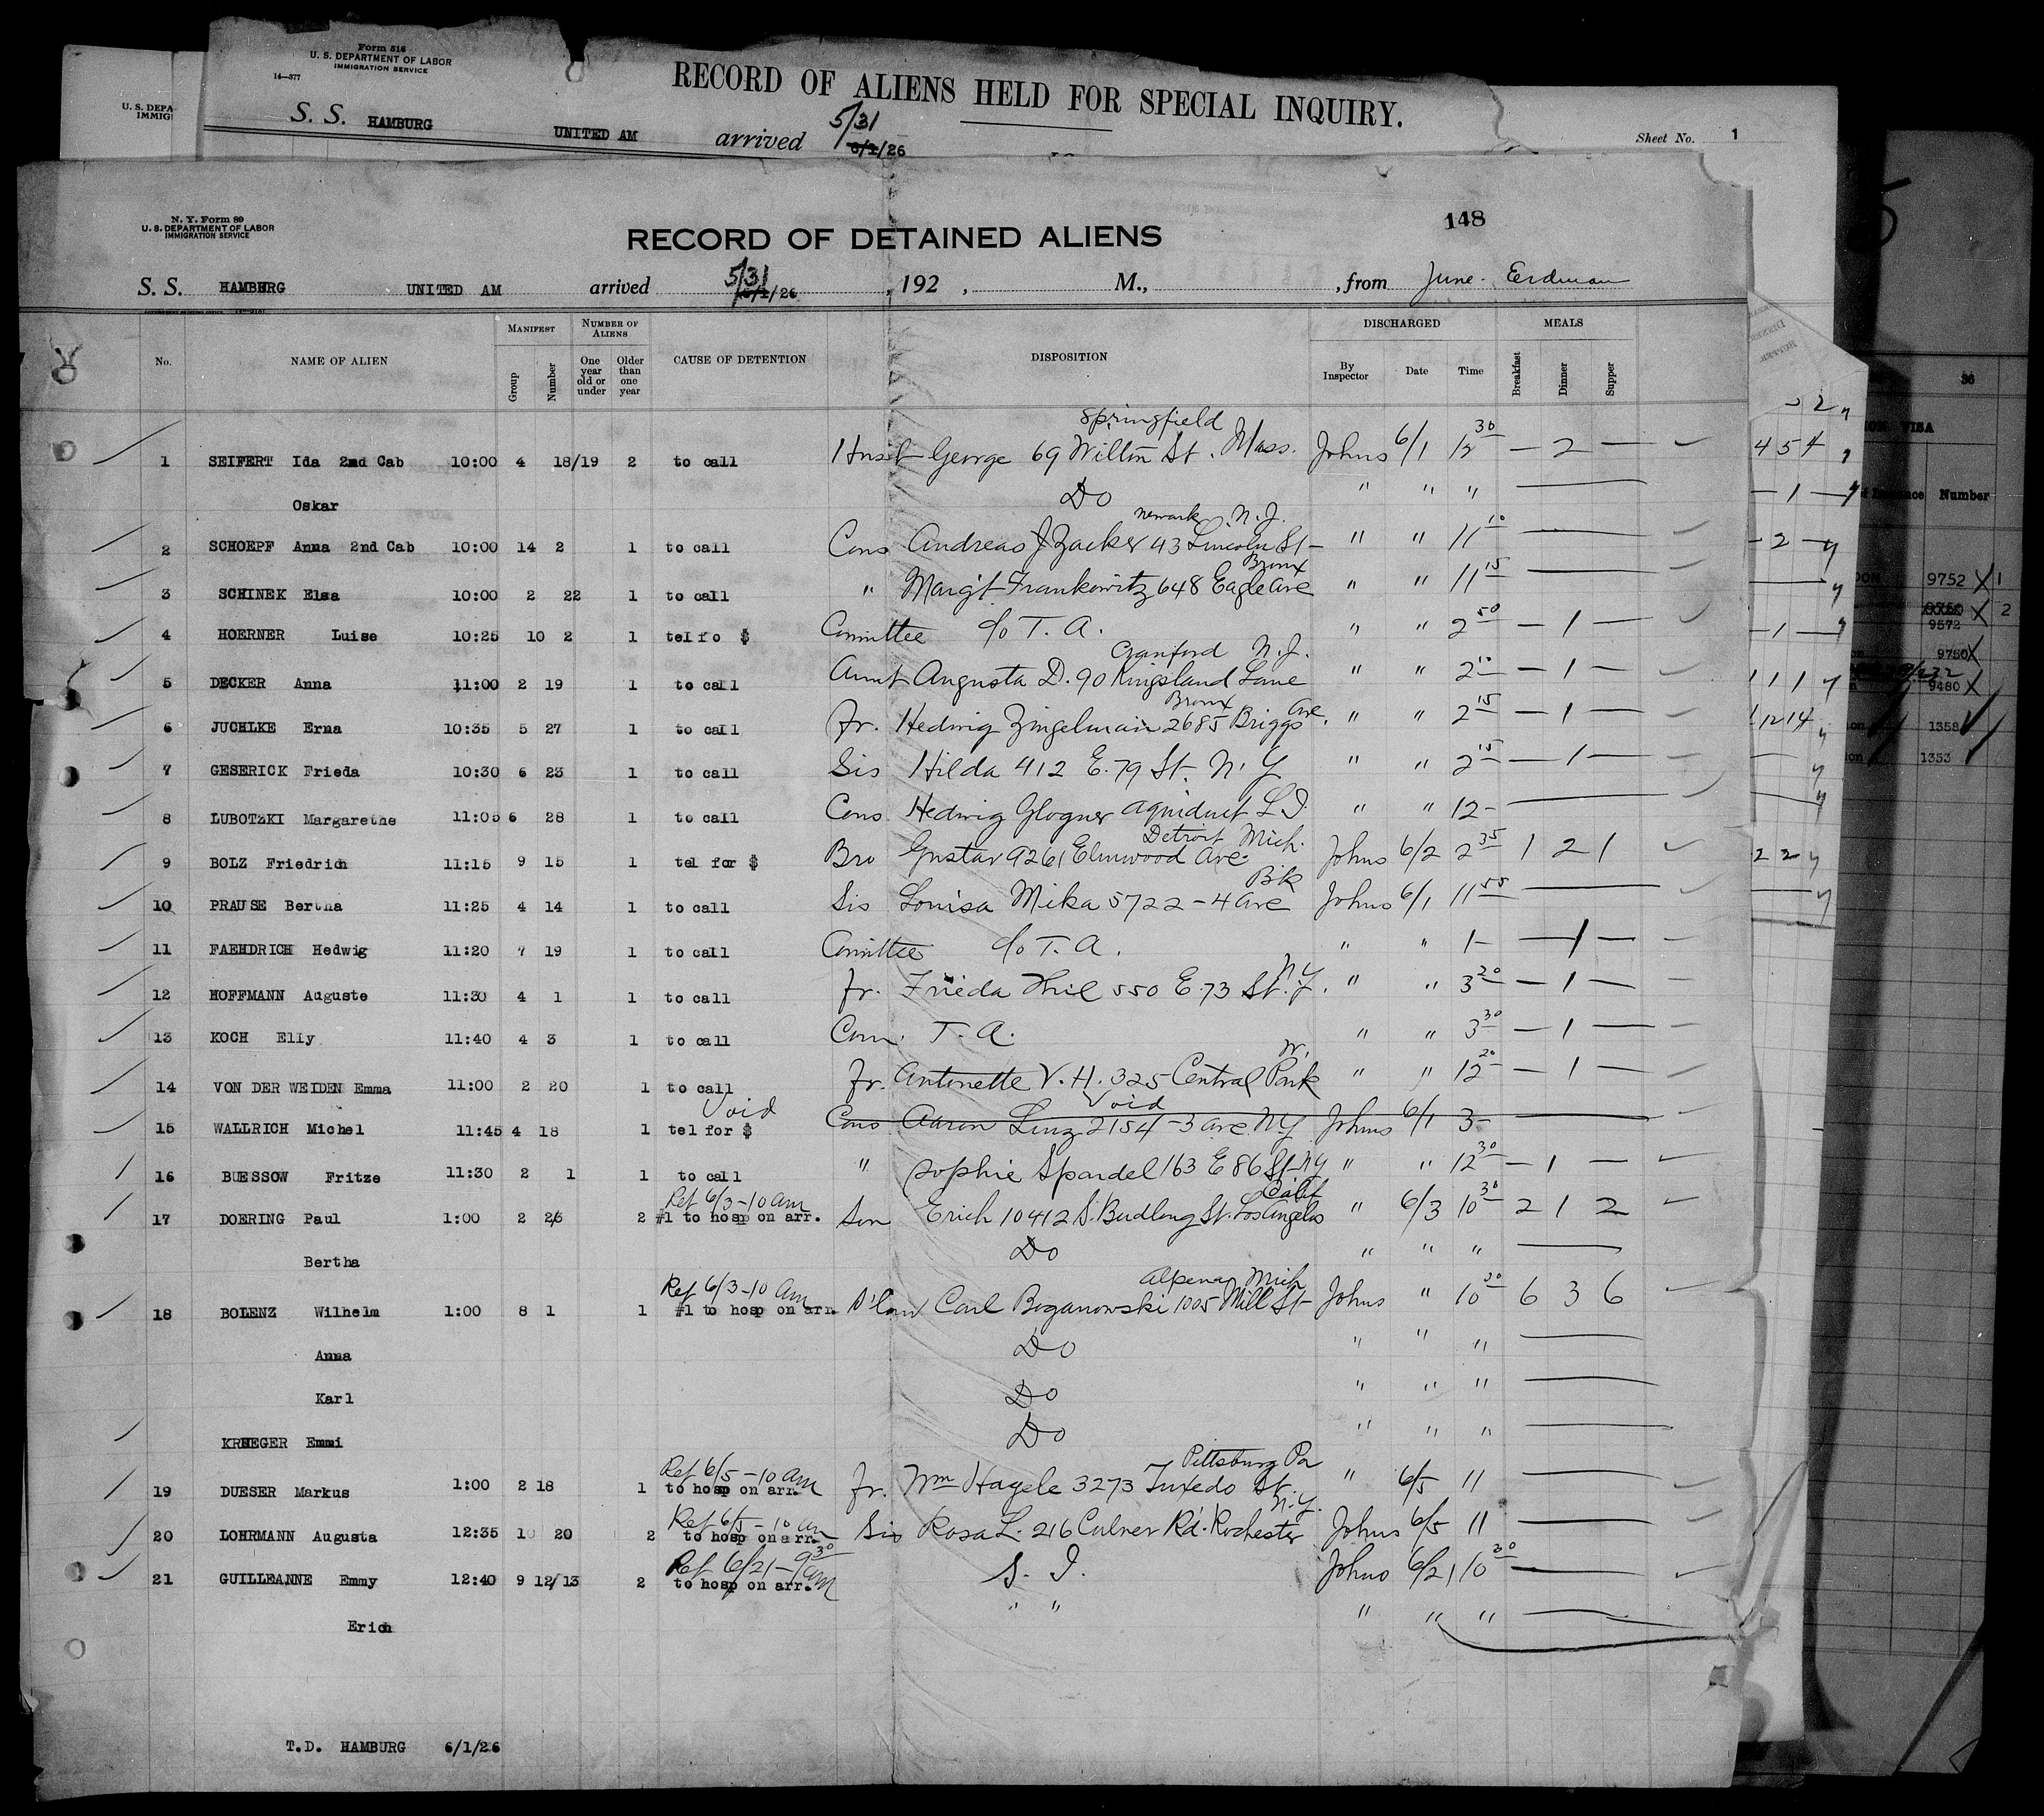 Form 516
U. S. DEPARTMENT OF LABOR
IMMIGRATION SERVICE
14—377
RECORD OF ALIENS HELD FOR SPECIAL INQUIRY.
U. S. DEPA
IMMIG
S. S. HAMBURG UNITED AM arrived 5/31 6/1/26
Sheet No. 1
N. Y. Form 89
U. S. DEPARTMENT OF LABOR
IMMIGRATION SERVICE
148
RECORD OF DETAINED ALIENS
S. S. HAMBURG UNITED AM arrived 5/31 6/1/26, 192 , M., , from June. Erdman
No. NAME OF ALIEN MANIFEST Group Number NUMBER OF ALIENS One year old or under Older than one year CAUSE OF DETENTION DISPOSITION DISCHARGED By Inspector Date Time MEALS Breakfast Dinner Supper
Springfield
1 SEIFERT Ida 2nd Cab 10:00 4 18/19 2 to call Husb George 69 Wilton St. Mass. Johns 6/1 12 30 — 2 —
Oskar Do " " "
Newark N.J.
2 SCHOEPF Anna 2nd Cab 10:00 14 2 1 to call Cons Andreas J Zacker 43 Lincoln St — " " 11 10
Bronx
3 SCHINEK Elsa 10:00 2 22 1 to call " Margit Frankowitz 648 Eagle Ave " " 11 15
4 HOERNER Luise 10:25 10 2 1 tel fo $ Committee c/o T. A. " " 2 50 — 1 —
Cranford N.J.
5 DECKER Anna 11:00 2 19 1 to call Aunt Augusta D. 90 Kingsland Lane " " 2 10 — 1 —
Bronx
6 JUCHLKE Erna 10:35 5 27 1 to call Fr. Hedwig Zingelmain 2685 Briggs Ave. " " 2 15 — 1 —
7 GESERICK Frieda 10:30 6 23 1 to call Sis Hilda 412 E. 79 St. N. Y " " 2 15 — 1 —
8 LUBOTZKI Margarethe 11:05 6 28 1 to call Cons. Hedwig Glogner Aquiduct L I " " 12 —
Detroit Mich.
9 BOLZ Friedrich 11:15 9 15 1 tel for $ Bro Gustav 9261 Elmwood Ave. Johns 6/2 2 35 1 2 1
Bk
10 PRAUSE Bertha 11:25 4 14 1 to call Sis Louisa Mika 5722 – 4 Ave Johns 6/1 11 55
11 FAEHDRICH Hedwig 11:20 7 19 1 to call Comittee c/o T. A. " " 1 — — 1 —
12 HOFFMANN Auguste 11:30 4 1 1 to call Fr. Frieda Thil 550 E. 73 St. N.Y. " " 3 20 — 1 —
13 KOCH Elly 11:40 4 3 1 to call Com. T. A. " " 3 30 — 1 —
14 VON DER WEIDEN Emma 11:00 2 20 1 to call Fr. Antonette V. H. 325 Central Park W. " " 12 20 — 1 —
Void Void
15 WALLRICH Michel 11:45 4 18 1 tel for $ Cons Aaron Linz 2154 – 3 Ave N.Y Johns 6/1 3 —
16 BUESSOW Fritze 11:30 2 1 1 to call " Sophie Spardel 163 E 86 St N Y " " 12 30 — 1 —
Ref 6/3 – 10 am Calif
17 DOERING Paul 1:00 2 26 2 #1 to hosp on arr. Son Erich 10412 S. Budlong St. Los Angeles " 6/3 10 30 2 1 2
Bertha Do " " "
Ref 6/3 – 10 Am Alpena Mich
18 BOLENZ Wilhelm 1:00 8 1 1 #1 to hosp on arr. B'law Carl Boganowski 1005 Mill St Johns " 10 30 6 3 6
Anna Do " " "
Karl Do " " "
KRUEGER Emmi Do " " "
Ref 6/5 – 10 am Pittsburg Pa
19 DUESER Markus 1:00 2 18 1 to hosp on arr. Fr. Wm Hagele 3273 Tuxedo St. " 6/5 11
Ref 6/5 – 10 am N.Y.
20 LOHRMANN Augusta 12:35 10 20 2 to hosp on arr. Sis Rosa L. 216 Culver Rd. Rochester Johns 6/5 11
Ref 6/21 – 9 30 am
21 GUILLEANNE Emmy 12:40 9 12/13 2 to hosp on arr. S. I. Johns 6/21 10 30
Erich " " " " "
T.D. HAMBURG 6/1/26
36
VISA
Number
9752 X 1
X 2
9572
9750 X
9480 X
1358
1353